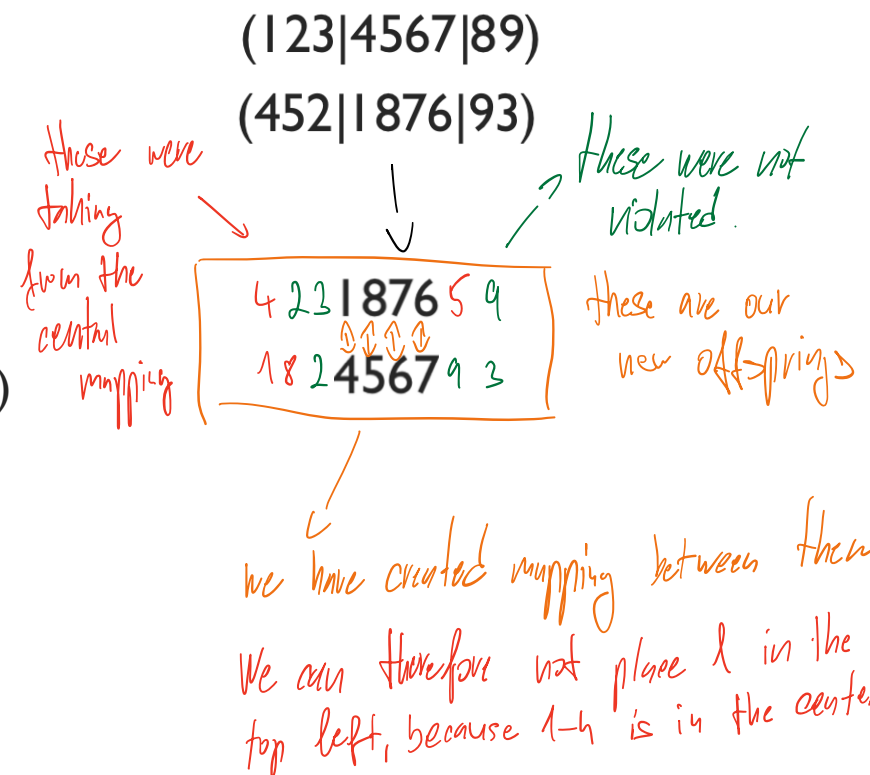 (123|4567|89)
(452|1876|93)
these were
taking
from the
central
mapping
these were not
violated.
4 2 3 1876 5 9
1 8 2 4567 9 3
)
these are our
new offsprings
we have created mapping between them
We can therefore not place 1 in the
top left, because 1-4 is in the cente